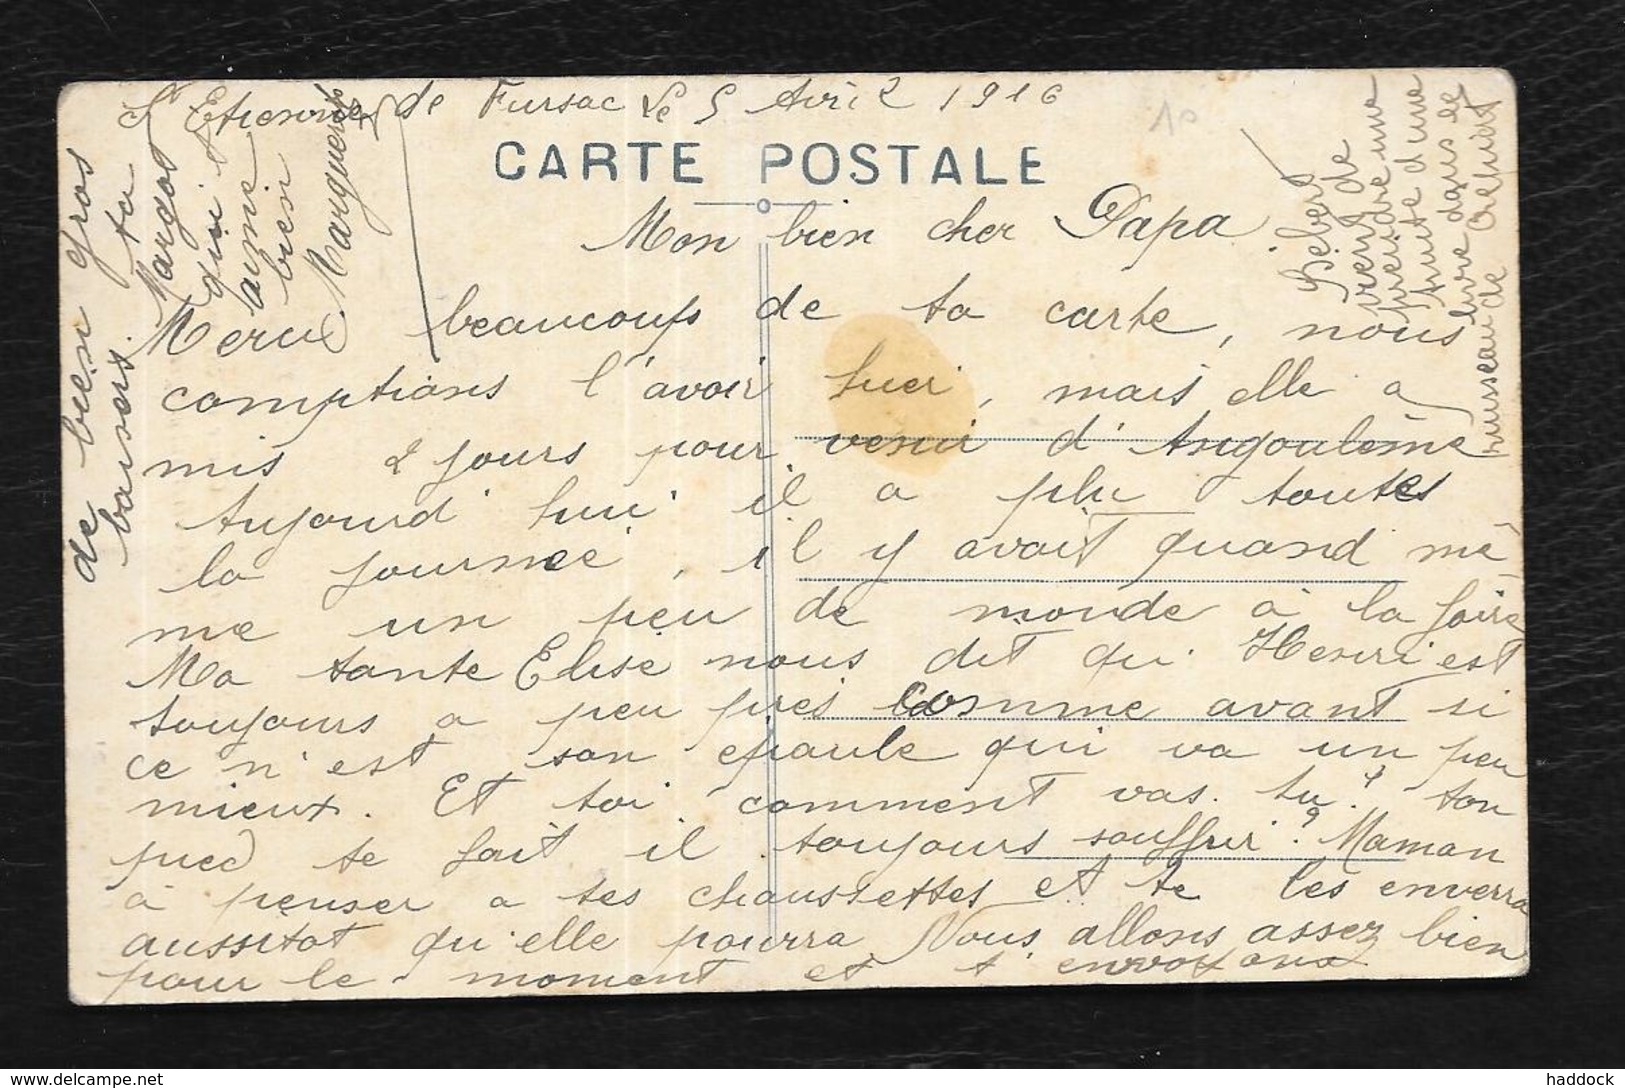 St Etienne de Fursac le 5 Avril 1916
10
CARTE POSTALE
Mon bien cher Papa
Merci beaucoup de ta carte, nous
comptions l'avoir hier, mais elle a
mis 2 jours pour venir d'Angoulême
Aujourd'hui il a plu toutes
la journée, il y avait quand mê
me un peu de monde à la foire
Ma tante Elise nous dit qu'Henri est
toujours a peu près comme avant si
ce n'est son epaule qui va un peu
mieux. Et toi comment vas-tu? ton
pied te fait il toujours souffrir? Maman
à penser a tes chaussettes et te les enverra
aussitot qu'elle pourra Nous allons assez bien
pour le moment et t'envoyons
de bien gros
baisers. ta
Margot
qui
aime
bien
Marguerite
vient de
prendre une
truite d'une
livre dans le
ruisseau de